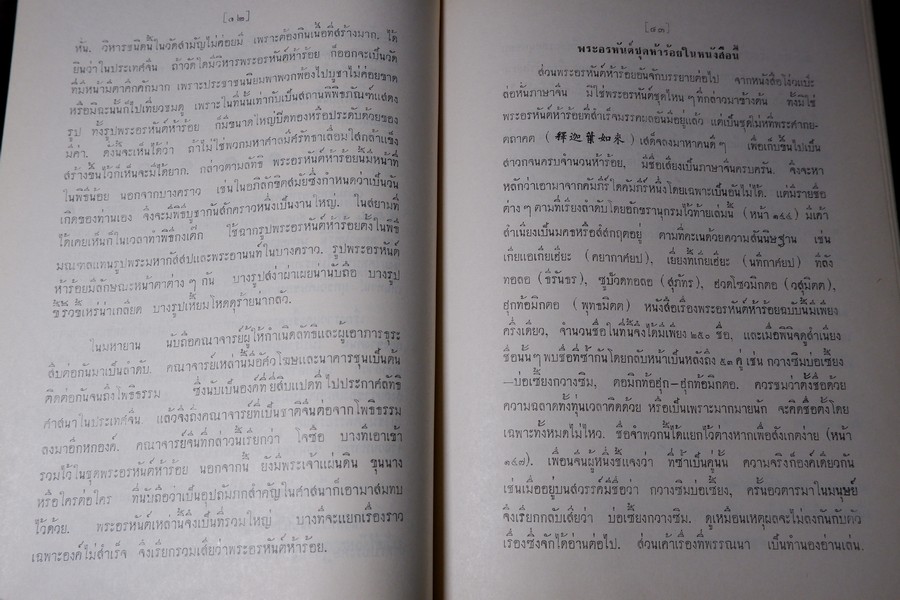 [๑๒]
หั้น. วิหารชนิดนี้ในวัดสามัญไม่ค่อยมี เพราะต้องกินเนื้อที่สร้างมาก. ได้
ยินว่าในประเทศจีน ถ้าวัดใดมีวิหารพระอรหันต์ห้าร้อย ก็ออกจะเป็นวัด
ที่มีหน้ามีตาคึกคักมาก เพราะประชาชนนิยมพาพวกพ้องไปบูชาไม่ค่อยขาด
หรือมิฉะนั้นก็ไปเที่ยวชมดู เพราะในที่นั้นเท่ากับเป็นสถานพิพิธภัณฑ์แสดง
รูป ทั้งรูปพระอรหันต์ห้าร้อย ก็มีขนาดใหญ่ปิดทองหรือประดับด้วยของ
มีค่า. ดังนั้นจะเห็นได้ว่า ถ้าไม่ใช่พวกมหาศาลมีศรัทธาเลื่อมใสกล้าแข็ง
สร้างขึ้นไว้ก็เห็นจะมีได้ยาก. กล่าวตามลัทธิ พระอรหันต์ห้าร้อยนั้นมีหน้าที่
ในพิธีน้อย นอกจากบางคราว เช่นในอภิลักขิตสมัยซึ่งกำหนดว่าเป็นวัน
เกิดของท่านเอง จึงจะมีพิธีบูชากันสักคราวหนึ่งเป็นงานใหญ่. ในสยามที่
ได้เคยเห็นก็ในเวลาทำพิธีกงเต๊ก ใช้ฉากรูปพระอรหันต์ห้าร้อยตั้งในพิธี
มณฑลแทนรูปพระมหากัสสปและพระอานนท์ในบางคราว. รูปพระอรหันต์
ห้าร้อยมีลักษณะหน้าตาต่าง ๆ กัน บางรูปสง่าผ่าเผยน่านับถือ บางรูป
ขี้ริ้วขี้เหร่น่าเกลียด บางรูปเหี้ยมโหดดุร้ายน่ากลัว.
ในมหายาน นับถือคณาจารย์ผู้ให้กำเนิดลัทธิและผู้เอาภารธุระ
สืบต่อกันมาเป็นลำดับ. คณาจารย์เหล่านี้มีอัศวโฆษและนาคารชุนเป็นต้น
ติดต่อกันจนถึงโพธิธรรม ซึ่งนับเป็นองค์ที่ยี่สิบแปดที่ไปประกาศลัทธิ
ศาสนาในประเทศจีน. แล้วจึงถึงคณาจารย์ที่เป็นชาติจีนต่อจากโพธิธรรม
ลงมาอีกหกองค์. คณาจารย์จีนที่กล่าวนี้เรียกว่า โจซือ บางทีเอาเข้า
รวมไว้ในชุดพระอรหันต์ห้าร้อย นอกจากนี้ ยังมีพระเจ้าแผ่นดิน ขุนนาง
หรือใครต่อใคร ที่นับถือว่าเป็นอุปถัมภกสำคัญในศาสนาก็เอามาสมทบ
ไว้ด้วย. พระอรหันต์เหล่านี้จึงเป็นที่รวมใหญ่ บางทีจะแยกเรื่องราว
เฉพาะองค์ไม่สำเร็จ จึงเรียกรวมเสียว่าพระอรหันต์ห้าร้อย.
[๑๓]
พระอรหันต์ชุดห้าร้อยในหนังสือนี้
ส่วนพระอรหันต์ห้าร้อยอันจักบรรยายต่อไป จากหนังสือโง้วแปะ
ล่อหั่นภาษาจีน มิใช่พระอรหันต์ชุดไหน ๆ ที่กล่าวมาข้างต้น ทั้งมิใช่
พระอรหันต์ห้าร้อยที่สำเร็จมรรคผลอันมีอยู่แล้ว แต่เป็นชุดใหม่ที่พระศากยะ-
ตถาคต (釋迦葉如來) เสด็จลงมาหาคนดี ๆ เพื่อเก็บขึ้นไปเป็น
สาวกจนครบจำนวนห้าร้อย, มีชื่อเสียงเป็นภาษาจีนครบครัน. จึงจะหา
หลักว่าเอามาจากคัมภีร์ใดคัมภีร์หนึ่งโดยเฉพาะเป็นอันไม่ได้. แต่มีรายชื่อ
ต่าง ๆ ตามที่เรียงลำดับโดยอักขรานุกรมไว้ท้ายเล่มนี้ (หน้า ๑๔๔) มีเค้า
สำเนียงเป็นมคธหรือสํสกฤตอยู่ ตามที่คะเนด้วยความสันนิษฐาน เช่น
เกียแอเกียเฮี่ยะ (คยากาศยป), เยี่ยงที้เกียเฮี่ยะ (นทีกาศยป) ที่ลัง
ทอลอ (ธีรันธร), ซูปัวดทอลอ (สุภัทร), ฮวดโซวมิกตอ (วสุมิตต),
ฮุกท้อมิกตอ (พุทธมิตต) หนังสือเรื่องพระอรหันต์ห้าร้อยฉบับนี้มีเพียง
ครึ่งเดียว, จำนวนชื่อในที่นี้จึงได้มีเพียง ๒๕๐ ชื่อ, และเมื่อพินิจดูสำเนียง
ชื่อนั้น ๆ พบชื่อที่ซ้ำกันโดยกลับหน้าเป็นหลังถึง ๕๓ คู่ เช่น กวางซิมบ่อเซี้ยง
—บ่อเซี้ยงกวางซิม, ตอมิกท้อฮุก–ฮุกท้อมิกตอ. ควรชมว่าตั้งชื่อด้วย
ความฉลาดทั้งทุ่นเวลาคิดด้วย หรือเป็นเพราะมากมายนัก จะคิดชื่อตั้งโดย
เฉพาะทั้งหมดไม่ไหว. ชื่อจำพวกนี้ได้แยกไว้ต่างหากเพื่อสังเกตง่าย (หน้า
๑๔๗). เพื่อนจีนผู้หนึ่งชี้แจงว่า ที่ซ้ำเป็นคู่นั้น ความจริงก็องค์เดียวกัน
เช่นเมื่ออยู่บนสวรรค์มีชื่อว่า กวางซิมบ่อเซี้ยง, ครั้นอวตารมาในมนุษย์
จึงเรียกกลับเสียว่า บ่อเซี้ยงกวางซิม. ดูเหมือนเหตุผลจะไม่ลงกันกับตัว
เรื่องซึ่งจักได้อ่านต่อไป. ส่วนเค้าเรื่องที่พรรณนา เป็นทำนองอ่านเล่น.